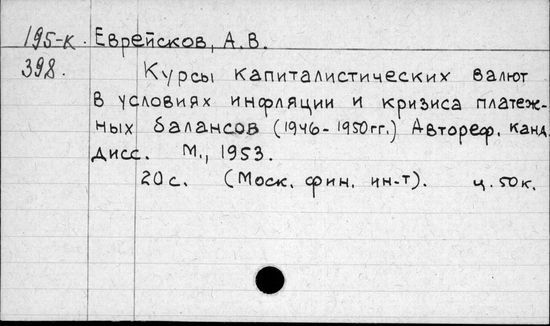 195-к. Еврейсков, А.В.
398. Курсы капиталистических валют
в условиях инфляции и кризиса платеж-
ных балансов (1946-1950гг.) Автореф. канд.
дисс. М., 1953.
20с. (Моск. фин. ин-т). ц. 50к.